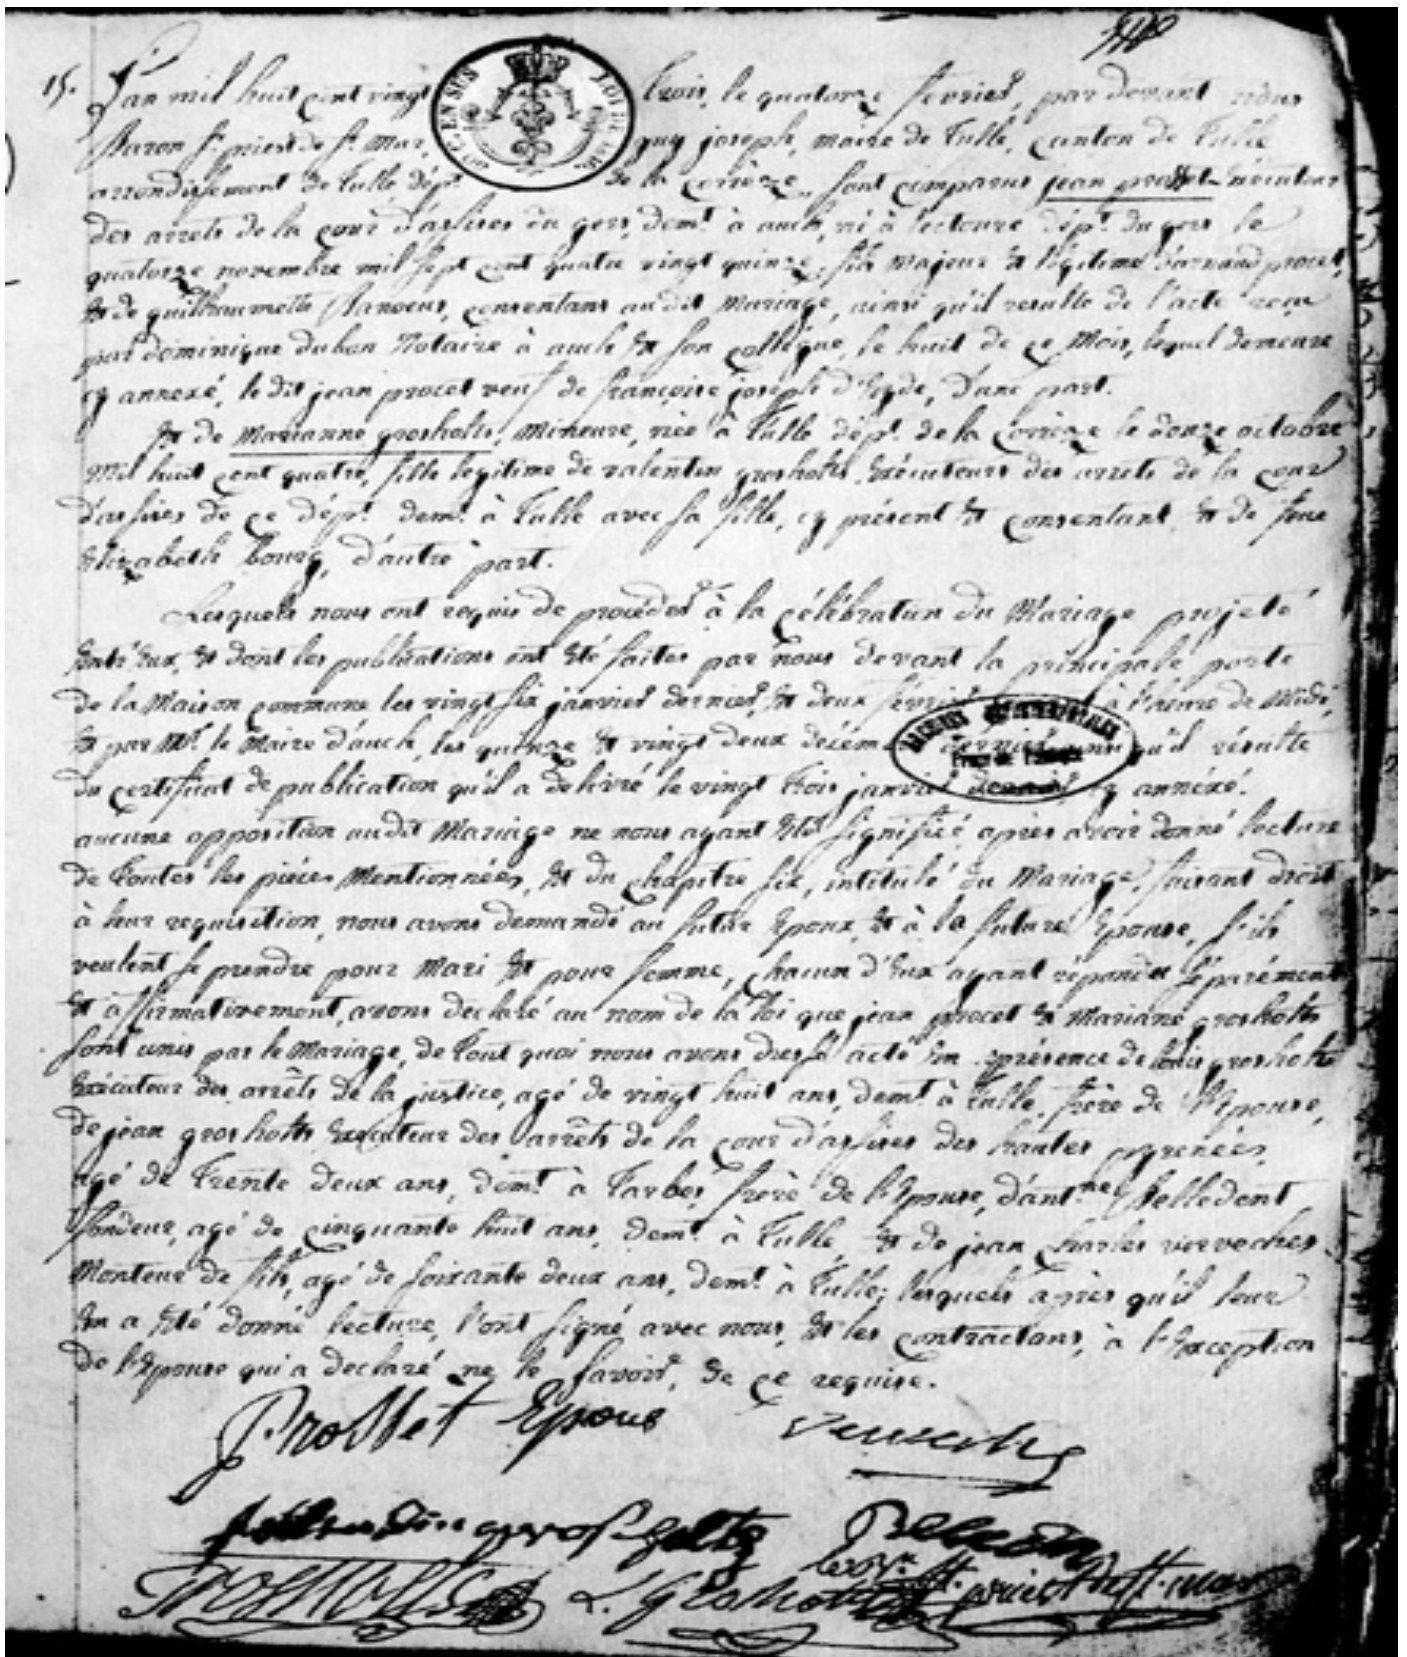 15. L'an mil huit cent vingt trois, le quatorze fevrier, par devant nous
Baron St. priest de St. Mur, guy joseph, maire de Tulle, canton de Tulle
arrondissement de Tulle, dépt. de la corrèze, sont comparus jean prosset executeur
des arrets de la cour d'assises du gers, demt. à auch, né à lectoure dépt. du gers le
quatorze novembre mil sept cent quatre vingt quinze, fils majeur & légitime d'arnaud procet,
& de guilhaumette, consentans au dit mariage, ainsi qu'il resulte de l'acte reçu
par dominique Notaire à auch & son collègue, le huit de ce mois, lequel demeure
cy annexé, le dit jean procet veuf de françoise joseph, d'une part.
& de Marianne grosholts, mineure, née à Tulle dépt. de la Corrèze le douze octobre
mil huit cent quatre, fille legitime de valentin grosholts, executeur des arrets de la cour
d'assises de ce dépt. demt. à Tulle avec sa fille, cy présent & consentant, & de feue
elizabeth bourg, d'autre part.
Lesquels nous ont requis de procéder à la célébration du Mariage projeté
entr'eux, & dont les publications ont été faites par nous devant la principale porte
de la Maison commune les vingt six janvier dernier, & deux février à l'heure de midi,
& par Mr. le Maire d'auch, les quinze & vingt deux décembre dernier, qu'il résulte
du certificat de publication qu'il a délivré le vingt trois janvier dernier, cy annéxé.
aucune opposition audit Mariage ne nous ayant été signifiée après avoir donné lecture
de toutes les pièces mentionnées, & du chapitre six, intitulé du Mariage, faisant droit
à leur requisition, nous avons demandé au futur Epoux & à la future Epouse, s'ils
veulent se prendre pour Mari & pour femme, chacun d'eux ayant répondu séparément
& affirmativement, avons declaré au nom de la loi que jean procet & Mariane grosholts
sont unis par le Mariage, de tout quoi nous avons dressé acte en présence de louis grosholts
exécuteur des arrêts de la justice, agé de vingt huit ans, demt. à Tulle, frère de l'Epouse,
de jean grosholts executeur des arrêts de la cour d'assises des hautes pyrenées,
agé de trente deux ans, demt. à Tarbes, frère de l'Epouse, d'antne.
fondeur, agé de cinquante huit ans, demt. à Tulle, & de jean charles
Monteur de fils, agé de soixante deux ans, demt. à Tulle; lesquels après qu'il leur
en a été donné lecture, l'ont signé avec nous, & les contractans, à l'exception
de l'Epouse qui a declaré ne le savoir, de ce requise.
Prosset Epous
grosholtz
Grosholts L. Grosholts St. priest de St. mur